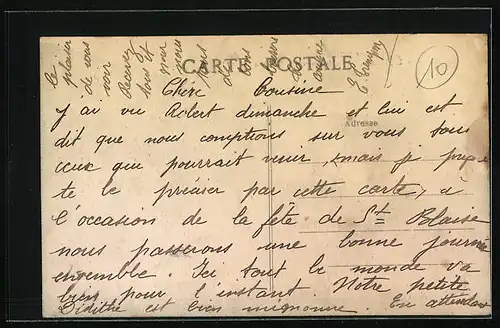 CARTE POSTALE
Adresse
10
Chère Cousine
j'ai vu Robert dimanche et lui est
dit que nous comptions sur vous tous
ceux que pourrait venir, mais je
te le préciser par cette carte, a
l'occasion de la fête de St Blaise
nous passerons une bonne journé
ensemble. Ici tout le monde va
bien pour l'instant. Notre petite
est bien mignonne. En attendant
le
plaisir
de vous
voir
Recevez
tous et
nous
tous
de
bons
baisers